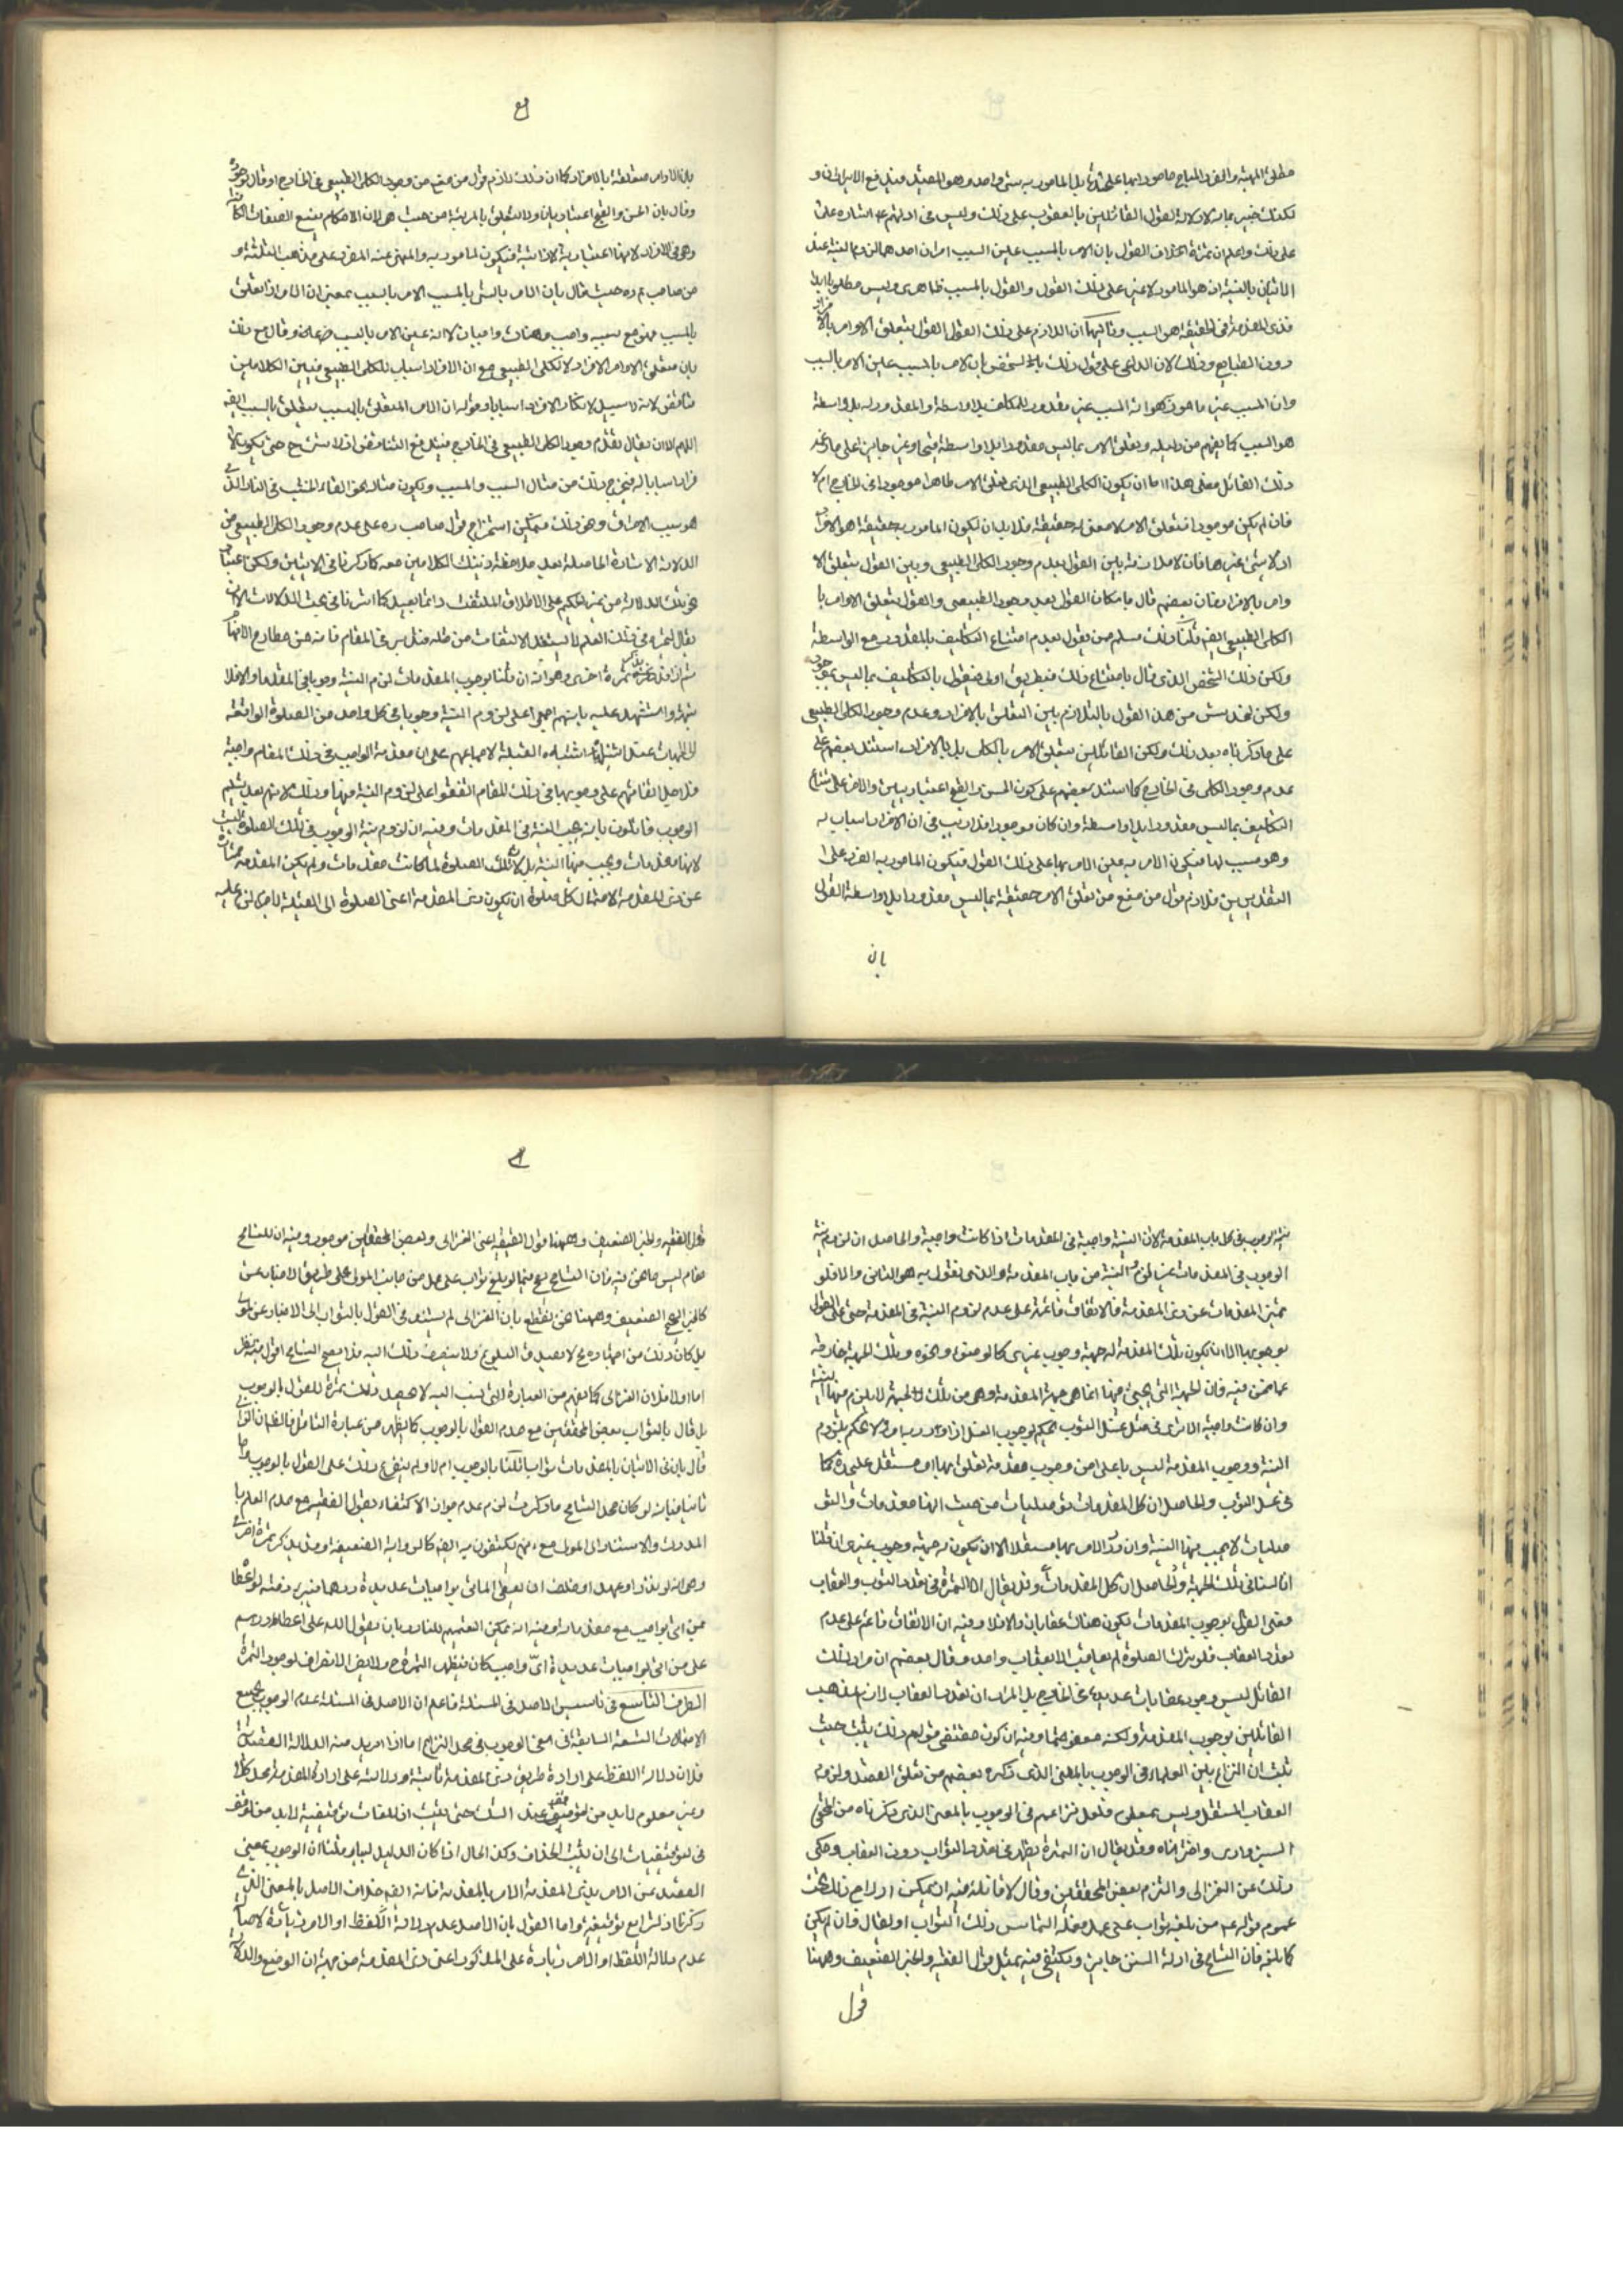 مطلق المهية والفرد المباح مامورا بهما على حدة بل المامور به شئ واحد وهو المقيد فيندفع الايراد و
لكنك خبير بما فى دلالة القول القائلين بالعقوب على ذلك وليس فى ادلتهم اشارة على
على ذلك واعلم ان ثمرة الخلاف القول بان الامر بالمسبب عين السبب امران احدهما لزوم النية عند
الاتيان بالسبب اذ هو المامور لا غير على ذلك القول والقول بالمسبب ظاهرى وليس مطلوبا لذاته
فذى المقدمة فى الحقيقة هو السبب وثانيهما ان اللازم على ذلك القول القول بتعلق الاوامر بالافراد
دون الطبايع وذلك لان الداعى على قول ذلك الشخص بان الامر بالمسبب عين الامر بالسبب
وان المسبب غير ما هو كك هو انه المسبب غير مقدور للمكلف بلا واسطة والمقدور له بلا واسطة
هو السبب كما يفهم من دليله وتعلق الامر بما ليس مقدورا بلا واسطة قبيح او غير جايز على ما عند
ذلك القائل فعلى هذا اما ان يكون الكلى الطبيعى الذى تعلق الامر ظاهرا موجودا فى الخارج ام لا
فان لم يكن موجودا فتعلق الامر لا معنى له حقيقة فلا بد ان يكون المامور به حقيقة هو الافراد
اذ لا شئ غيرها فان الملازمة بين القول بعدم وجود الكلى الطبيعى وبين القول بتعلق الا
وامر بالافراد فان بعضهم قال بامكان القول بعدم وجود الطبيعى والقول بتعلق الاوامر با
الكلى الطبيعى ايضا قلنا ذلك مسلم ممن يقول بعدم امتناع التكليف بالمقدور مع الواسطة
ولكن ذلك الشخص الذى قال بامتناع ذلك فبطريق اولى فيقول بالتكليف بما ليس بموجود
ولكن نخدش من هذا القول بالتلازم بين التعلق بالافراد وعدم وجود الكلى الطبيعى
على ما ذكرناه بعد ذلك ولكن القائلين بتعلق الامر بالكلى بل بالافراد استدل بعضهم على
عدم وجود الكلى فى الخارج كما استدل بعضهم على كون الحسن والقبح اعتباريين والامر على امتناع
التكليف بما ليس مقدورا بلا واسطة وان كان موجودا فلا ريب فى ان الافراد اسباب له
وهو مسبب لها فيكون الامر به عين الامر بها على ذلك القول فيكون المامور به الفرد على ا
لتقديرين فلازم قول من منع من تعلق الامر حقيقة بما ليس مقدورا بلا واسطة القول
بان
بان الاوامر متعلقة بالافراد كما ان ذلك لازم قول من منع من وجود الكلى الطبيعى فى الخارج او قال بوجوده
وقال بان الحسن والقبح اعتباريان
وهو فى الافراد لانها اعتبارية لا ذاتية فيكون المامور به والمنهى عنه الفرد على مذهب الثلثة و
من صاحب م ره حيث قال بان الامر بالشئ بالمسبب الامر بالسبب بمعنى ان الامر اذا تعلق
بالمسبب فهو مع سببه واجب وهناك واجبان لا انه عين الامر بالسبب خاصة وقال مع ذلك
بان متعلق الاوامر الافراد لا الكلى الطبيعى مع ان الافراد اسباب للكلى الطبيعى فبين الكلامين
تناقض لانه لا سبيل لانكار الافراد اسبابا وقوله ان الامر المتعلق بالمسبب يتعلق بالسبب ايضا
اللهم الا ان يقال بعدم وجود الكلى الطبيعى فى الخارج فيندفع التناقض اذ لا شئ ح حتى يكون الا
فراد اسبابا له فيخرج ذلك من مثال السبب والمسبب ويكون مثاله نحو القاء الخشب فى النار الذى
هو سبب الاحراق وعن ذلك فيمكن استخراج قول صاحب ره على عدم وجود الكلى الطبيعى من
الدلالة الاشارة الحاصلة بعد ملاحظة ذينك الكلامين معه كما ذكرنا فى الاثنين ولكن اعتبار
نحو تلك الدلالة من غير الحكيم على الاطلاق الملتفت دائما بعيد كما اشرنا فى بحث الدلالات الا ان
يقال لمهرة فى ذلك العلم لا يستبعد الالتفات من مثله فتدبر فى المقام فانه من مطارح الافهام
ثم انا قد نفرض ثمرة اخرى وهو انه ان قلنا بوجوب المقدمات لزم النية وجوبا فى المقدمات والا فلا
ثمرة واستشهد عليه بانهم اجمعوا على لزوم النية وجوبا فى كل واحد من الصلوة الواقعة
الى الجهات عند اشتباه القبلة لاجماعهم على ان مقدمة الواجب فى ذلك المقام واجبة
فلاجل اتفاقهم على وجوبها فى ذلك المقام اتفقوا على لزوم النية فيها وذلك لانهم بعد تسليم
الوجوب قائلون بانه يجب النية فى المقدمات وفيه ان لزوم نية الوجوب فى تلك الصلوة ليست
لانها مقدمات ويجب فيها النية بل لان تلك الصلوة لما كانت مقدمات ولم يكن المقدمة ممتازة
عن ذى المقدمة لاحتمال كل صلوة ان يكون ذى المقدمة اعنى الصلوة الى القبلة لا جرم لزم عليه
نية الوجوب فى كل باب المقدمة لان النية واجبة فى المقدمات اذا كانت واجبة والحاصل ان لزوم نية
الوجوب فى المقدمات غير لزوم النية من باب المقدمة والذى نقول به هو الثانى والا فلو
تميز المقدمات عن ذى المقدمة فالاتفاق قائمة على عدم لزوم النية فى المقدمة حتى على القول
بوجوبها الا ان يكون تلك المقدمة له جهة وجوب غيرى كالوضوء ونحوه وتلك الجهة خارجة
عما نحن فيه فان الجهة التى يجئ فيها انما هى جهة المقدمة وهى من تلك الجهة لا يلزم فيها النية
وان كانت واجبة الا ترى فى مثل غسل الثوب نحكم بوجوب الغسل اذا ورد به امر ولا نحكم بلزوم
النية ووجوب المقدمة ليس باعلى من وجوب مقدمة تعلق بها امر مستقل على حدة كما
فى غسل الثوب والحاصل ان كل المقدمات توصليات من حيث انها مقدمات والتو
صليات لا يجب فيها النية وان ورد الامر بها مستقلا الا ان يكون له جهة وجوب غيرى ان قلنا
انا لسنا فى تلك الجهة والحاصل ان كل المقدمات وقد يقال ان الثمرة فى تعدد الثواب والعقاب
فعلى القول بوجوب المقدمات يكون هناك عقابان والا فلا وفيه ان الاتفاق قائم على عدم
تعدد العقاب فلو ترك الصلوة لم يعاقب الا بعقاب واحد وقال بعضهم ان مراد ذلك
القائل ليس وجود عقابات عديدة فى الخارج بل المراد ان تعدد العقاب لازم مذهب
القائلين بوجوب المقدمة ولكنه معفو حتما وفيه ان كون مقتضى قولهم ذلك يثبت حيث
ثبت ان النزاع بين العلماء فى الوجوب بالمعنى الذى ذكره بعضهم من تعلق القصد ولزوم
العقاب المستقل وليس بمعلوم فلعل نزاعهم فى الوجوب بالمعنى الذى ذكرناه من المحقق
السبزوارى واخترناه وقد يقال ان الثمرة تظهر فى تعدد الثواب دون العقاب وحكى
ذلك عن الغزالى والتزم بعض المحققين وقال لا غائلة فيه اذ يمكن ادراج ذلك تحت
عموم قوله ع من بلغه ثواب على عمل ففعله التماس ذلك الثواب او يقال وان لم يكن
كما بلغه فان التسامح فى ادلة السنن جايز ويكتفى فيه بمثل قول الفقيه والخبر الضعيف وههنا
قول
قول الفقيه والخبر الضعيف وههنا قول الفقيه اعنى الغزالى وبعض المحققين موجود وفيه ان للتسامح
مقام ليس ما نحن فيه فان التسامح يجئ فيما لو بلغ ثواب على عمل من جانب المولى على طريق الاخبار عن
كالخبر الضعيف وههنا نحن نقطع بان الغزالى لم يستند فى القول بالثواب الى الاخبار عن
بل كان ذلك من اجتهاده ح لا يصدق البلوغ ولا ينصرف ذلك اليه فلا يصح التسامح اقول فيه نظر
اما اولا فلان الغزالى كما يفهم من العبارة التى نسب اليه لا يجعل ذلك ثمرة للقول بالوجوب
بل قال بالثواب بعض المحققين مع عدم القول بالوجوب كما يظهر من عبارة
قال بان فى الاتيان بالمقدمات ثوابا قلنا بالوجوب ام لا ولم يتفرع ذلك على القول بالوجوب واما
ثانيا فبانه لو كان محل التسامح ما ذكرت لزم عدم جواز الاكتفاء بقول الفقيه مع عدم العلم با
لمدرك والاستناد الى المولى مع انهم يكتفون به ايضا كالرواية الضعيفة وقد يذكر ثمرة اخرى
وهى انه لو نذر او عهد او حلف ان يعطى الاتى بواجبات عديدة درهما فيبرء ذمته لو اعطا
من اتى بواجب مع مقدماته وفيه انه يمكن التعميم للنادر بان يقول لله على اعطاء درهم
على من اتى بواجبات عديدة اى واجب كان فتظهر الثمرة ح ولا يضر الانصراف لوجود الثمرة
الطرف التاسع فى تاسيس الاصل فى المسئلة فاعلم ان الاصل فى المسئلة عدم الوجوب بجميع
الاحتمالات التسعة السابقة فى معنى الوجوب فى محل النزاع اما اذا اريد منه الدلالة العقلية
فلان دلالة اللفظ على ارادة طريق ذى المقدمة ثابتة ودلالته على ارادة المقدمة
وغير معلوم لا بد من التوقف عند الشك حتى يثبت ان اللغات توقيفية لا بد من التوقف
فى التوقيفيات الى ان يثبت الخلاف وكذا الحال اذا كان الدليل لبيا وقلنا ان الوجوب بمعنى
القصد من الامر بذى المقدمة الامر بالمقدمة فانه ايضا خلاف الاصل بالمعنى الذى
ذكرنا
عدم دلالة اللفظ او الامر زيادة على المذكور اعنى ذى المقدمة من جهة ان الوضع والدلالة